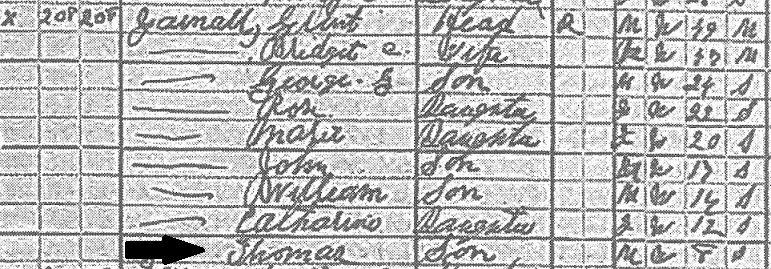 x 208 208 Gilbert Head R M W 49 M
Bridget C. Wife W 47 M
George G Son W 24 S
Rose Daughter W 22 S
Marie Daughter W 20 S
John Son M W 17 S
William Son M W 14 S
Catharine Daughter W 12 S
Thomas Son M W 8 S